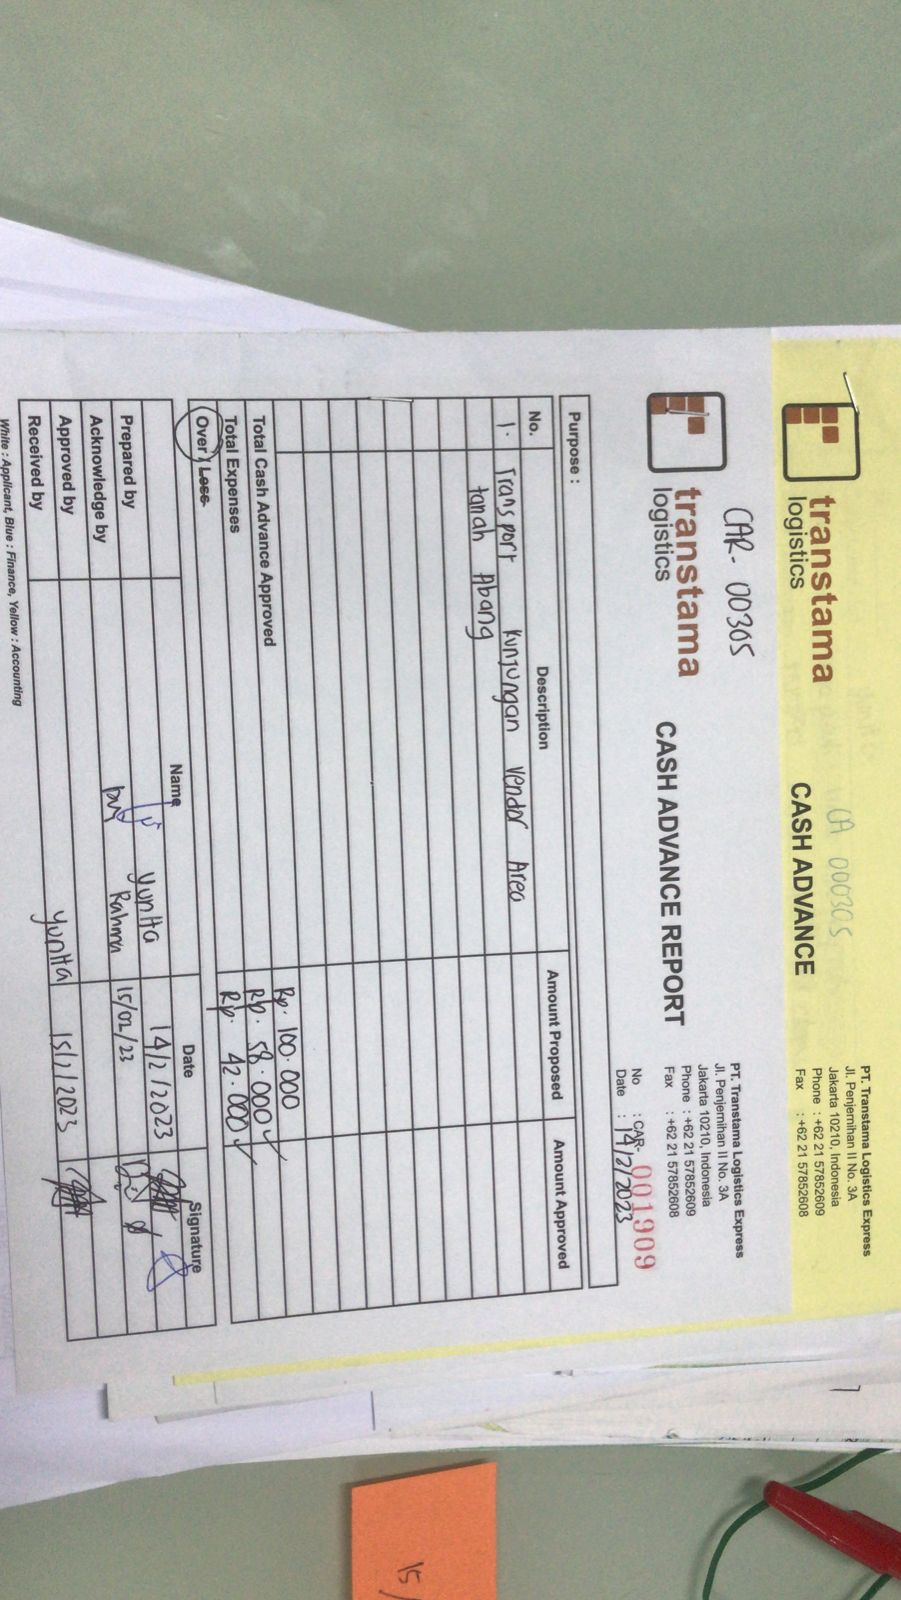 transtama
logistics
CA 000305
CASH ADVANCE
PT. Transtama Logistics Express
Jl. Penjernihan II No. 3A
Jakarta 10210, Indonesia
Phone : +62 21 57852609
Fax : +62 21 57852608
CAR- 00305
transtama
logistics
CASH ADVANCE REPORT
PT. Transtama Logistics Express
Jl. Penjernihan II No. 3A
Jakarta 10210, Indonesia
Phone : +62 21 57852609
Fax : +62 21 57852608
No : CAR- 001909
Date : 14/2/2023
Purpose :
No. Description Amount Proposed Amount Approved
1. Transport kunjungan vendor Area
tanah Abang
Total Cash Advance Approved Rp. 100.000
Total Expenses Rp. 58.000
Over / Less Rp. 42.000
Name Date Signature
Prepared by Yunita 14/2/2023
Acknowledge by Rahma 15/02/23
Approved by
Received by Yunita 15/2/2023
White : Applicant, Blue : Finance, Yellow : Accounting
15/